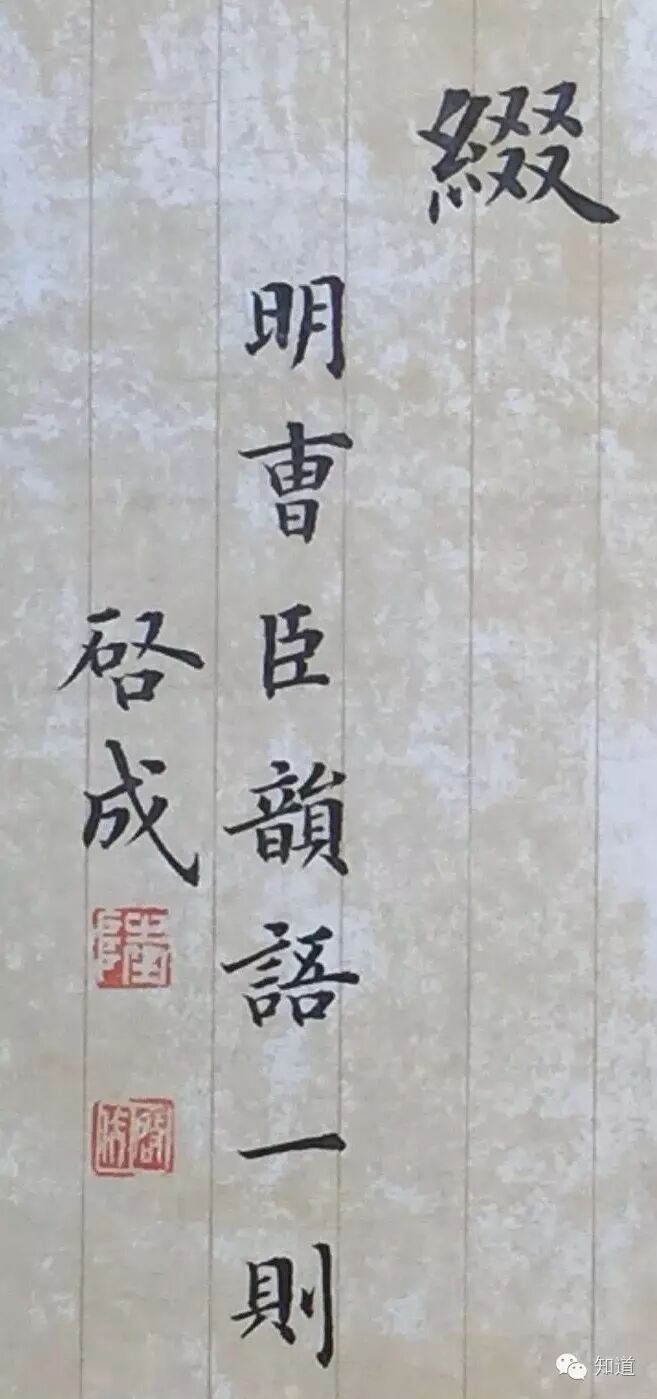 綴
明曺臣韻語一則
啓成
知道